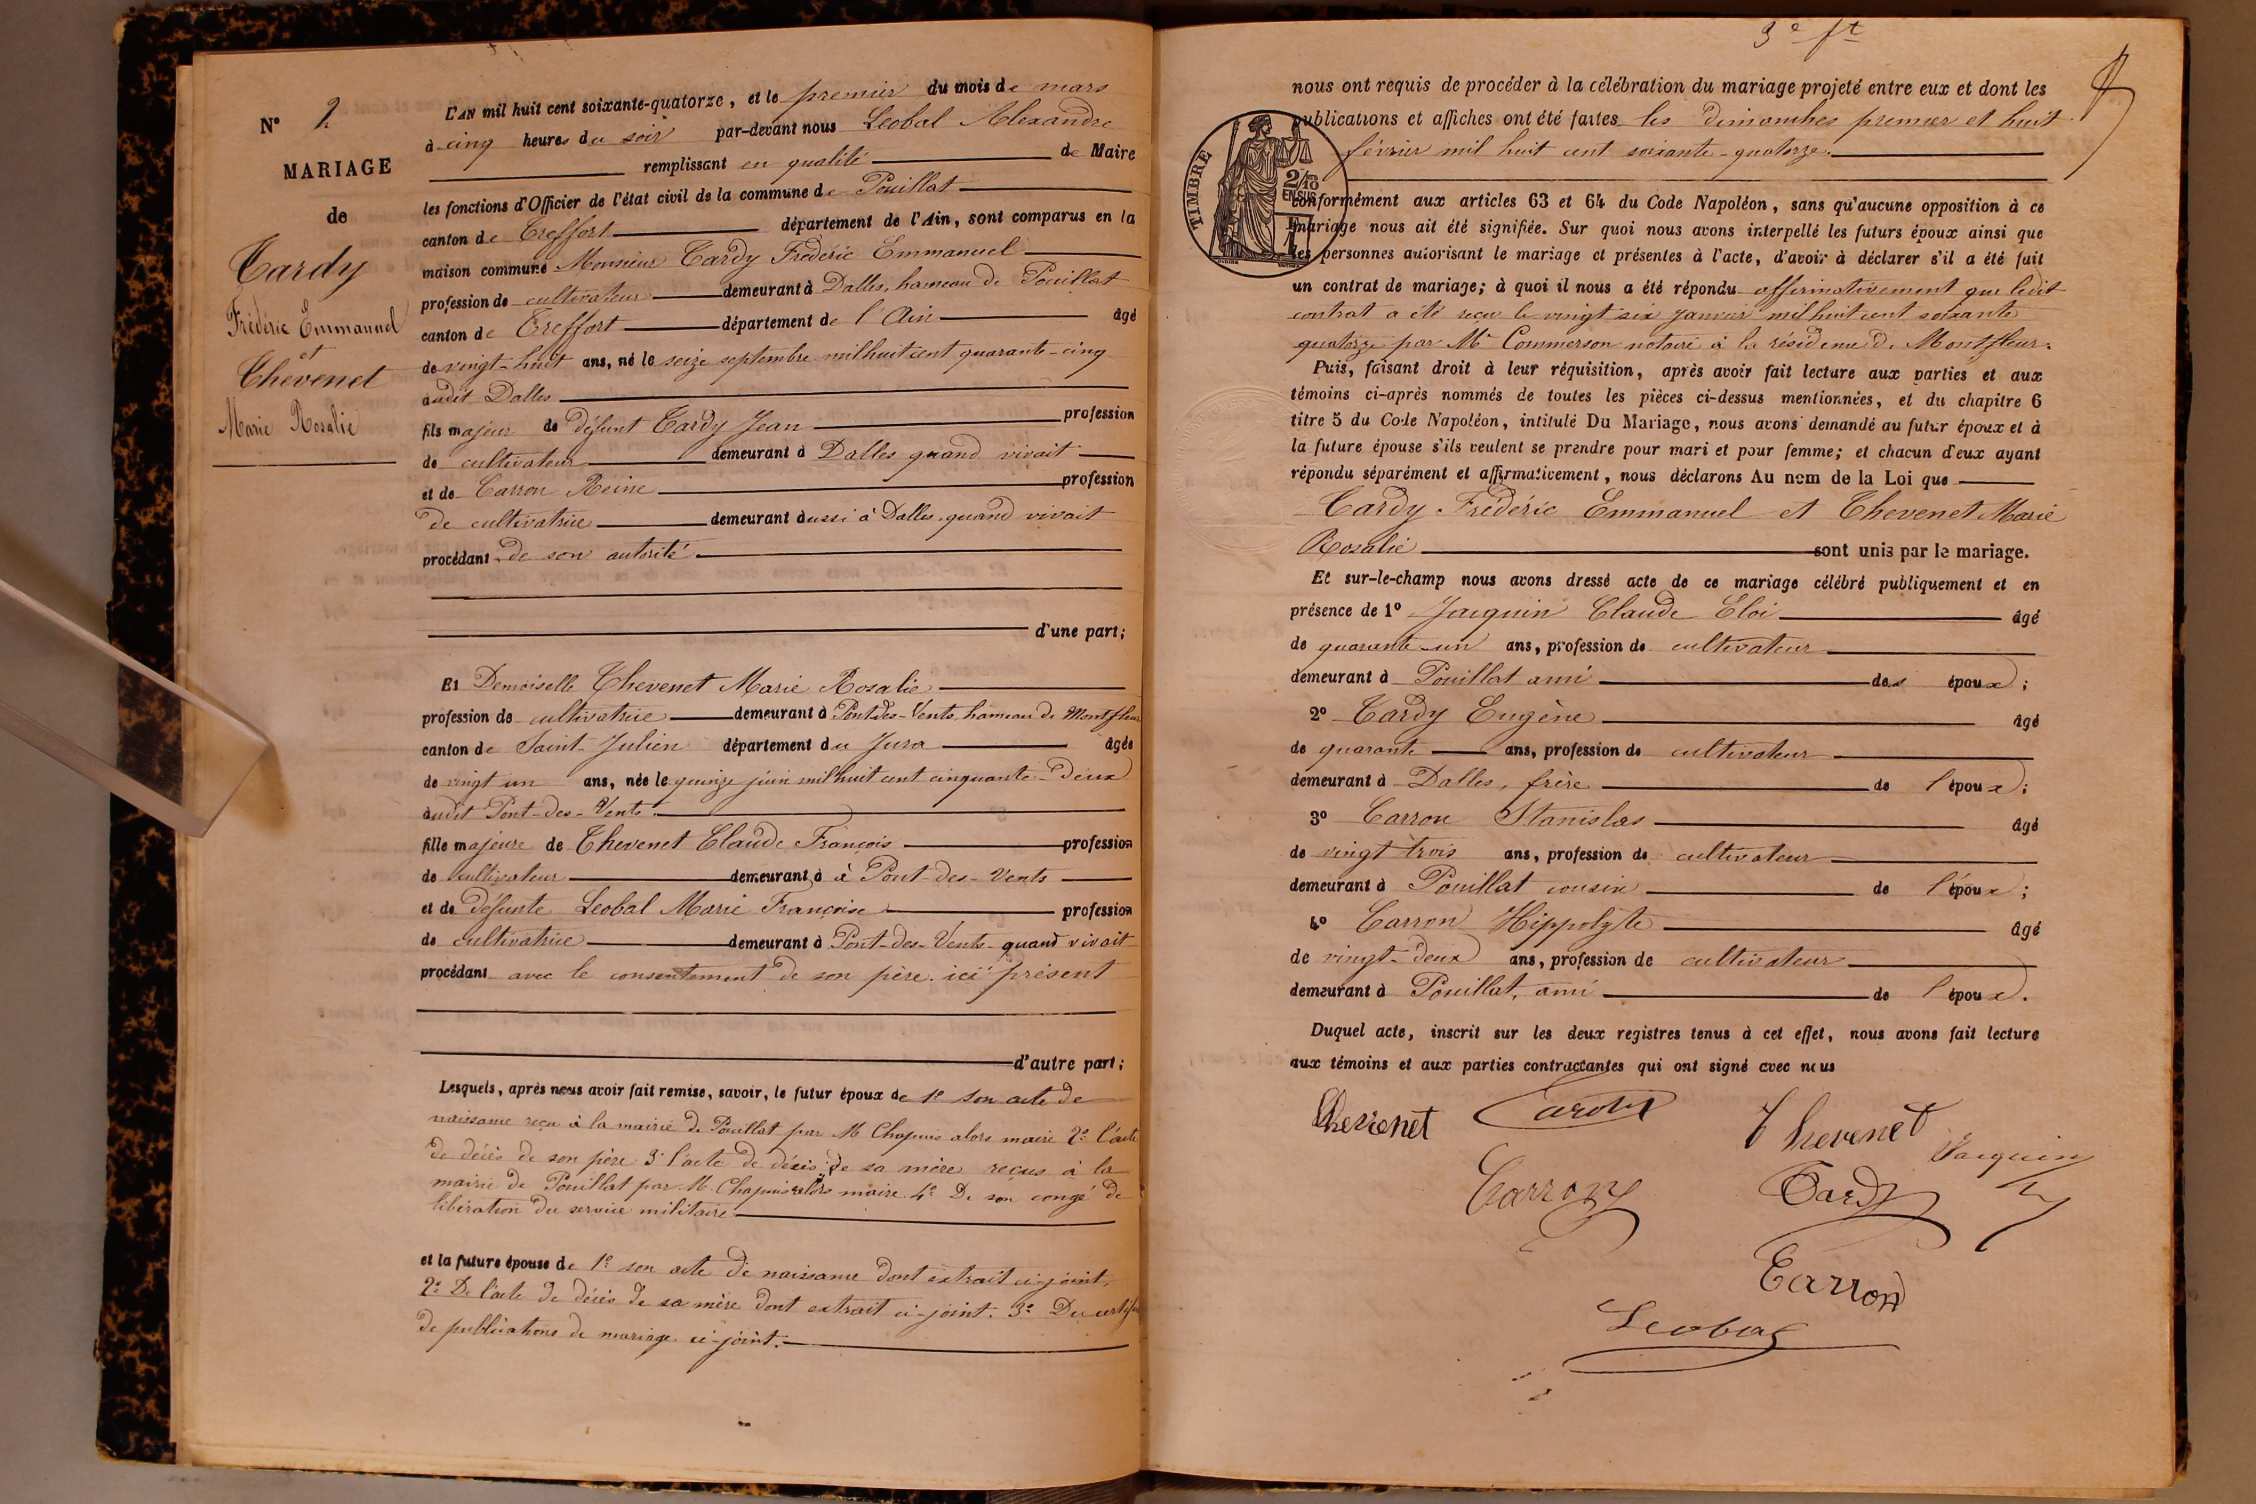 N° 2
MARIAGE
de
Tardy
Frédéric Emmanuel
et
Thevenet
Marie Rosalie
L'AN mil huit cent soixante-quatorze, et le premier du mois de mars
à cinq heures du soir par-devant nous Leobal Alexandre
remplissant en qualité de Maire
les fonctions d'Officier de l'état civil de la commune de Pouillat
canton de Treffort département de l'Ain, sont comparus en la
maison commune Monsieur Tardy Frédéric Emmanuel
profession de cultivateur demeurant à Dalles, hameau de Pouillat
canton de Treffort département de l'Ain âgé
de vingt-huit ans, né le seize septembre mil huit cent quarante-cinq
audit Dalles
fils majeur de défunt Tardy Jean profession
de cultivateur demeurant à Dalles quand vivait
et de Carron Reine profession
de cultivatrice demeurant aussi à Dalles quand vivait
procédant de son autorité
d'une part;
Et Demoiselle Thevenet Marie Rosalie
profession de cultivatrice demeurant à Pont-des-Vents hameau de Montfleur
canton de Saint-Julien département du Jura âgée
de vingt un ans, née le quinze juin mil huit cent cinquante-deux
audit Pont-des-Vents.
fille majeure de Thevenet Claude François profession
de cultivateur demeurant à à Pont-des-Vents
et de défunte Leobal Marie Françoise profession
de cultivatrice demeurant à Pont-des-Vents quand vivait
procédant avec le consentement de son père ici présent
d'autre part;
Lesquels, après nous avoir fait remise, savoir, le futur époux de 1° son acte de
naissance reçu à la mairie de Pouillat par M Chapuis alors maire 2° l'acte
de décès de son père 3° l'acte de décès de sa mère reçus à la
mairie de Pouillat par M. Chapuis alors maire 4° De son congé de
libération du service militaire
et la future épouse de 1° son acte de naissance dont extrait ci-joint,
2° De l'acte de décès de sa mère dont extrait ci-joint. 3° Du certifi
de publications de mariage ci-joint.
3e ft
nous ont requis de procéder à la célébration du mariage projeté entre eux et dont les
publications et affiches ont été faites les dimanches premier et huit
février mil huit cent soixante-quatorze.
TIMBRE
2/10
EN SUS
conformément aux articles 63 et 64 du Code Napoléon, sans qu'aucune opposition à ce
mariage nous ait été signifiée. Sur quoi nous avons interpellé les futurs époux ainsi que
les personnes autorisant le mariage et présentes à l'acte, d'avoir à déclarer s'il a été fait
un contrat de mariage; à quoi il nous a été répondu affirmativement que ledit
contrat a été reçu le vingt six janvier mil huit cent soixante
quatorze par Me Commerson notaire à la résidence de Montfleur.
Puis, faisant droit à leur réquisition, après avoir fait lecture aux parties et aux
témoins ci-après nommés de toutes les pièces ci-dessus mentionnées, et du chapitre 6
titre 5 du Code Napoléon, intitulé Du Mariage, nous avons demandé au futur époux et à
la future épouse s'ils veulent se prendre pour mari et pour femme; et chacun d'eux ayant
répondu séparément et affirmativement, nous déclarons Au nom de la Loi que
Tardy Frédéric Emmanuel et Thevenet Marie
Rosalie sont unis par le mariage.
Et sur-le-champ nous avons dressé acte de ce mariage célébré publiquement et en
présence de 1° Jacquin Claude Eloi âgé
de quarante-un ans, profession de cultivateur
demeurant à Pouillat ami des époux;
2° Tardy Eugène âgé
de quarante ans, profession de cultivateur
demeurant à Dalles, frère de l'époux;
3° Carron Stanislas âgé
de vingt trois ans, profession de cultivateur
demeurant à Pouillat cousin de l'époux;
4° Carron Hippolyte âgé
de vingt-deux ans, profession de cultivateur
demeurant à Pouillat, ami de l'époux.
Duquel acte, inscrit sur les deux registres tenus à cet effet, nous avons fait lecture
aux témoins et aux parties contractantes qui ont signé avec nous
Thevenet Thevenet Jacquin
Carron Tardy
Carron
Leobal